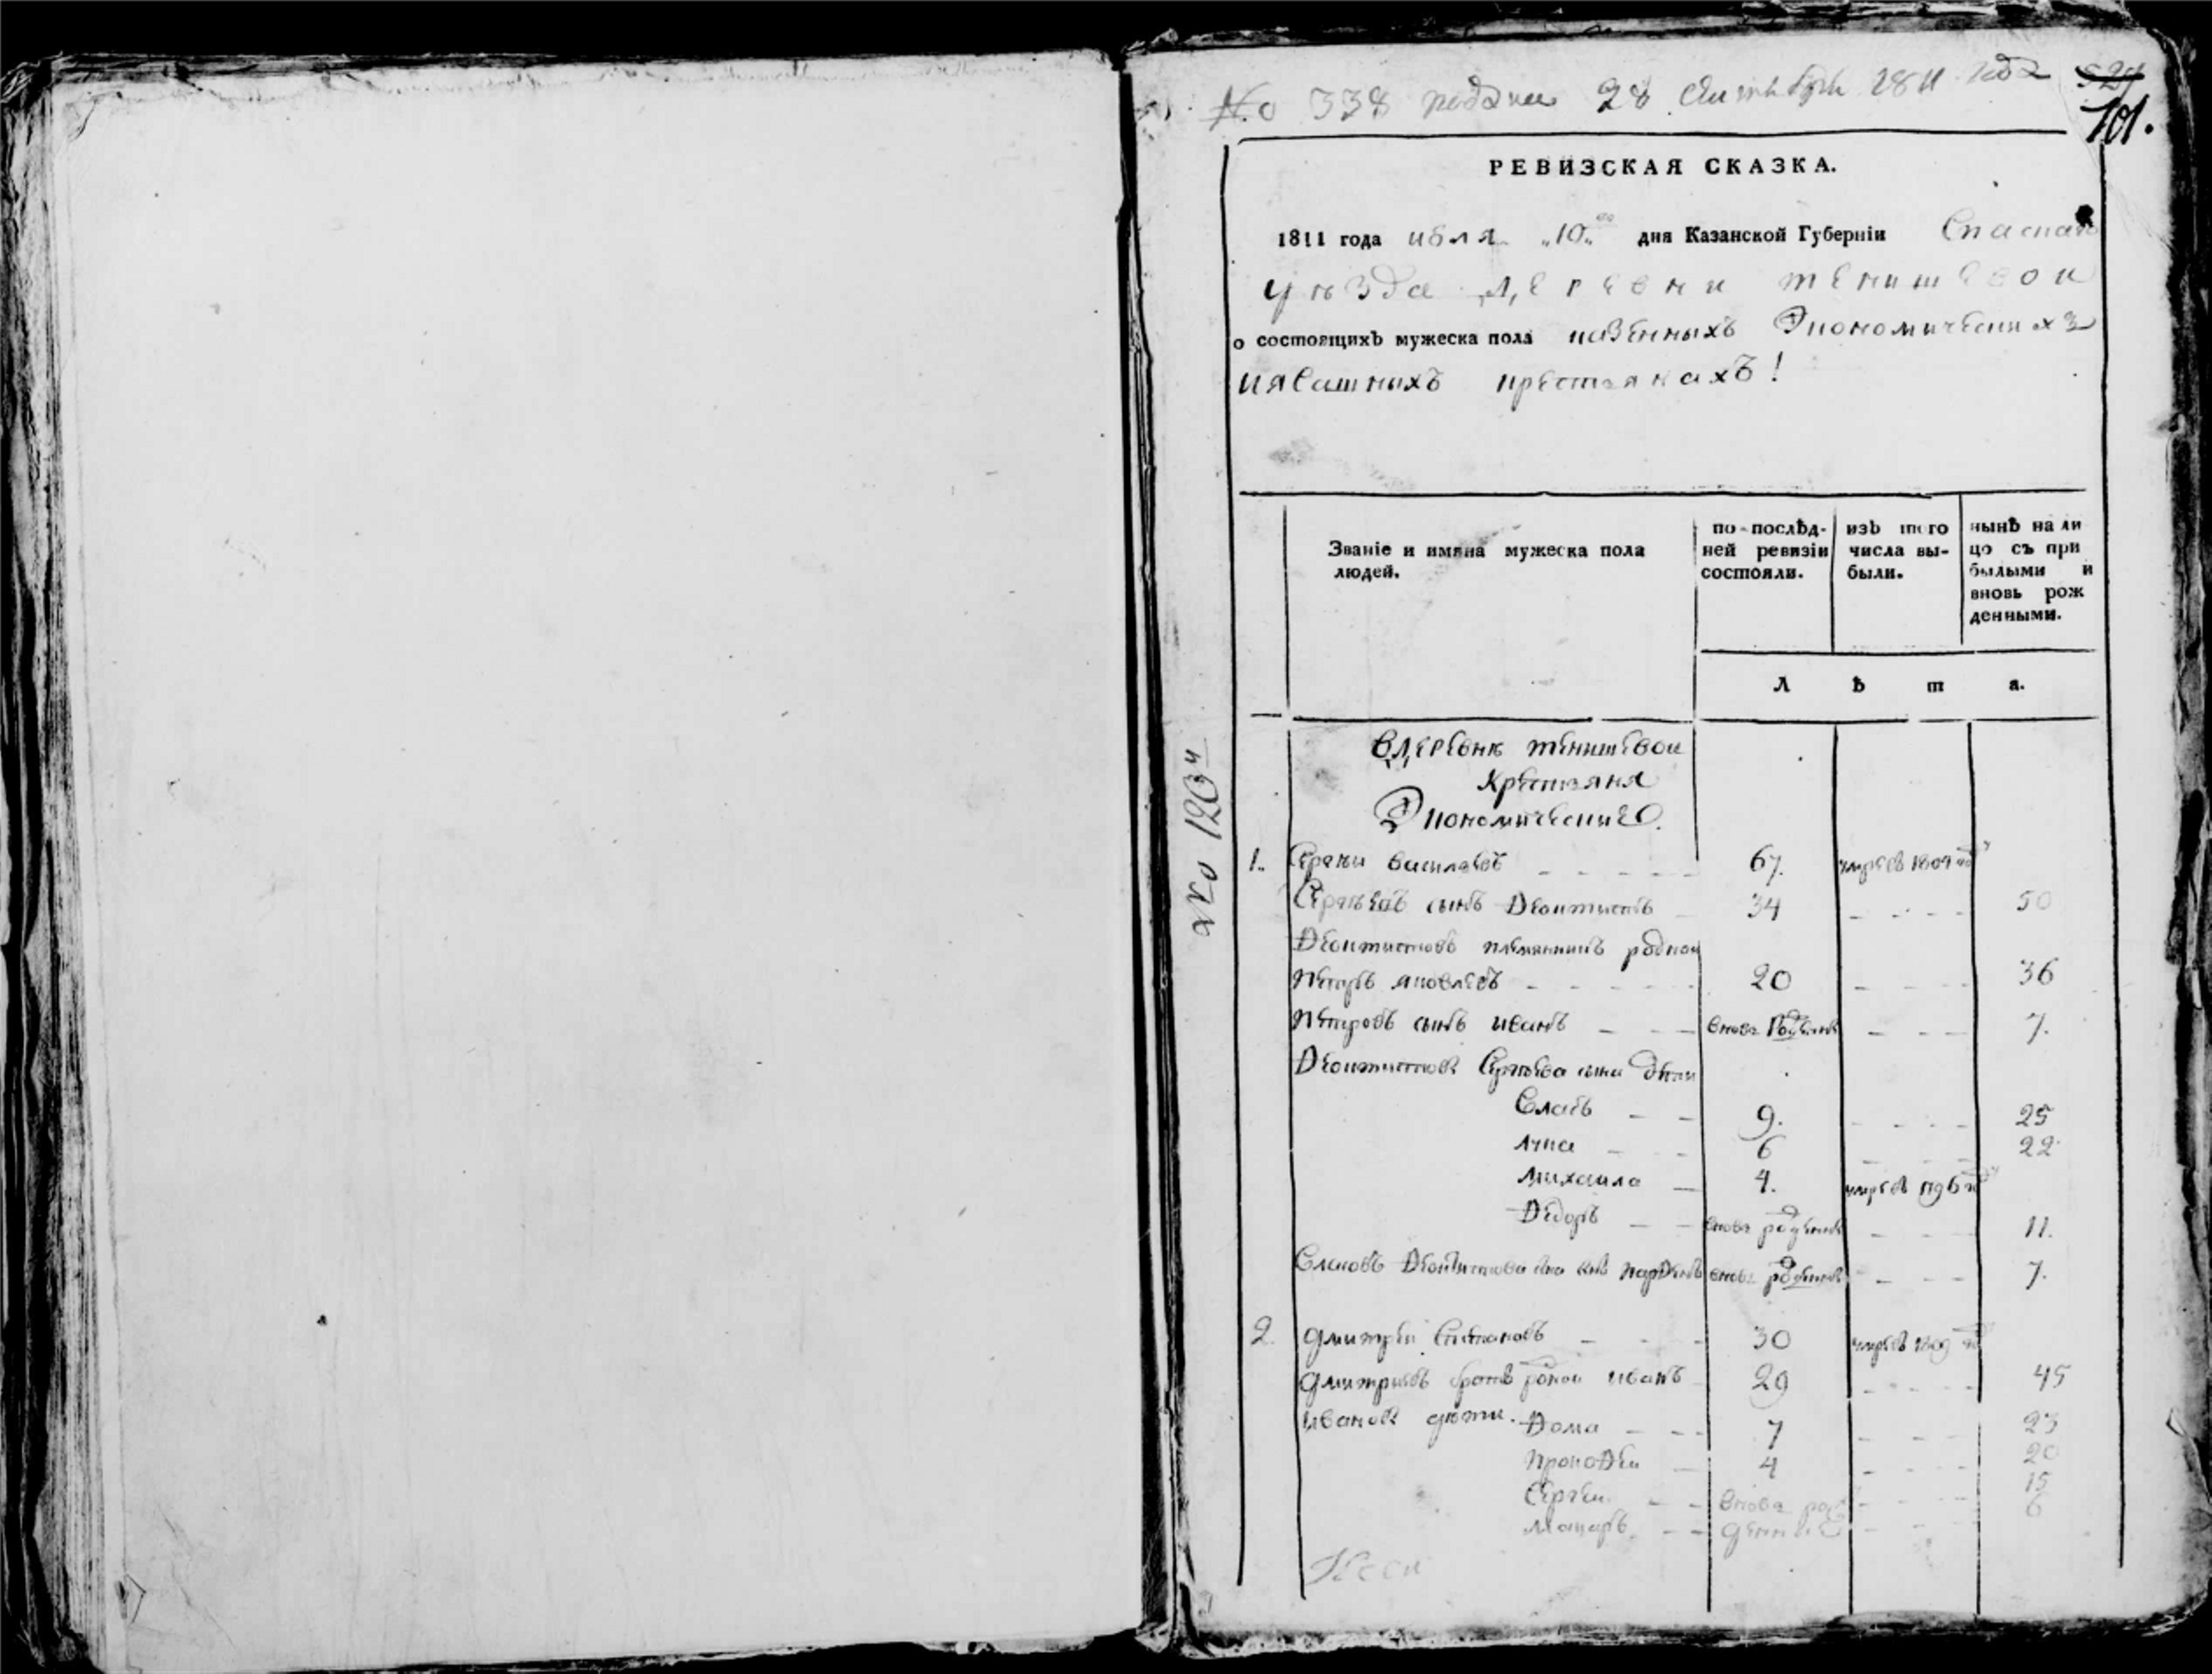 № 338 подана 28 сентября 1811 года
101.
РЕВИЗСКАЯ СКАЗКА.
1811 года июля „10„ го дня Казанской Губерніи Спаскаго
уѣзда деревни тенишевой
о состоящихъ мужеска пола казенныхъ Экономическихъ
и ясашныхъ крестьянахъ!
Званіе и имяна мужеска пола людей.
по послѣд-
ней ревизіи
состояли.
изъ того
числа вы-
были.
нынѣ на ли
цо съ при
былыми и
вновь рож
денными.
Л ѣ т а.
вдеревнѣ тенишевой
крестьяня
Экономические.
1. Сергѣи васильевъ 67. умре въ 1809 году
Сергѣевъ сынъ Ѳеоктистъ 34 50
Ѳеоктистовъ племянникъ родной
петръ яковлевъ 20 36
петровъ сынъ иванъ вновь рожденъ 7.
Ѳеоктистовы Сергѣева сына дѣти
Власъ 9. 25
лука 6 22
михаила 4. умре въ 1796 году
Ѳедоръ вновь рожденъ 11.
Власовъ Ѳеоктистова сынъ парѲенъ вновь рожденъ 7.
2. дмитреи Степановъ 30 умре въ 1809 году
дмитриевъ братъ родной иванъ 29 45
ивановы дѣти. Ѳома 7 23
прокоѲеи 4 20
Сергеи вновь рож 15
макаръ денные 6